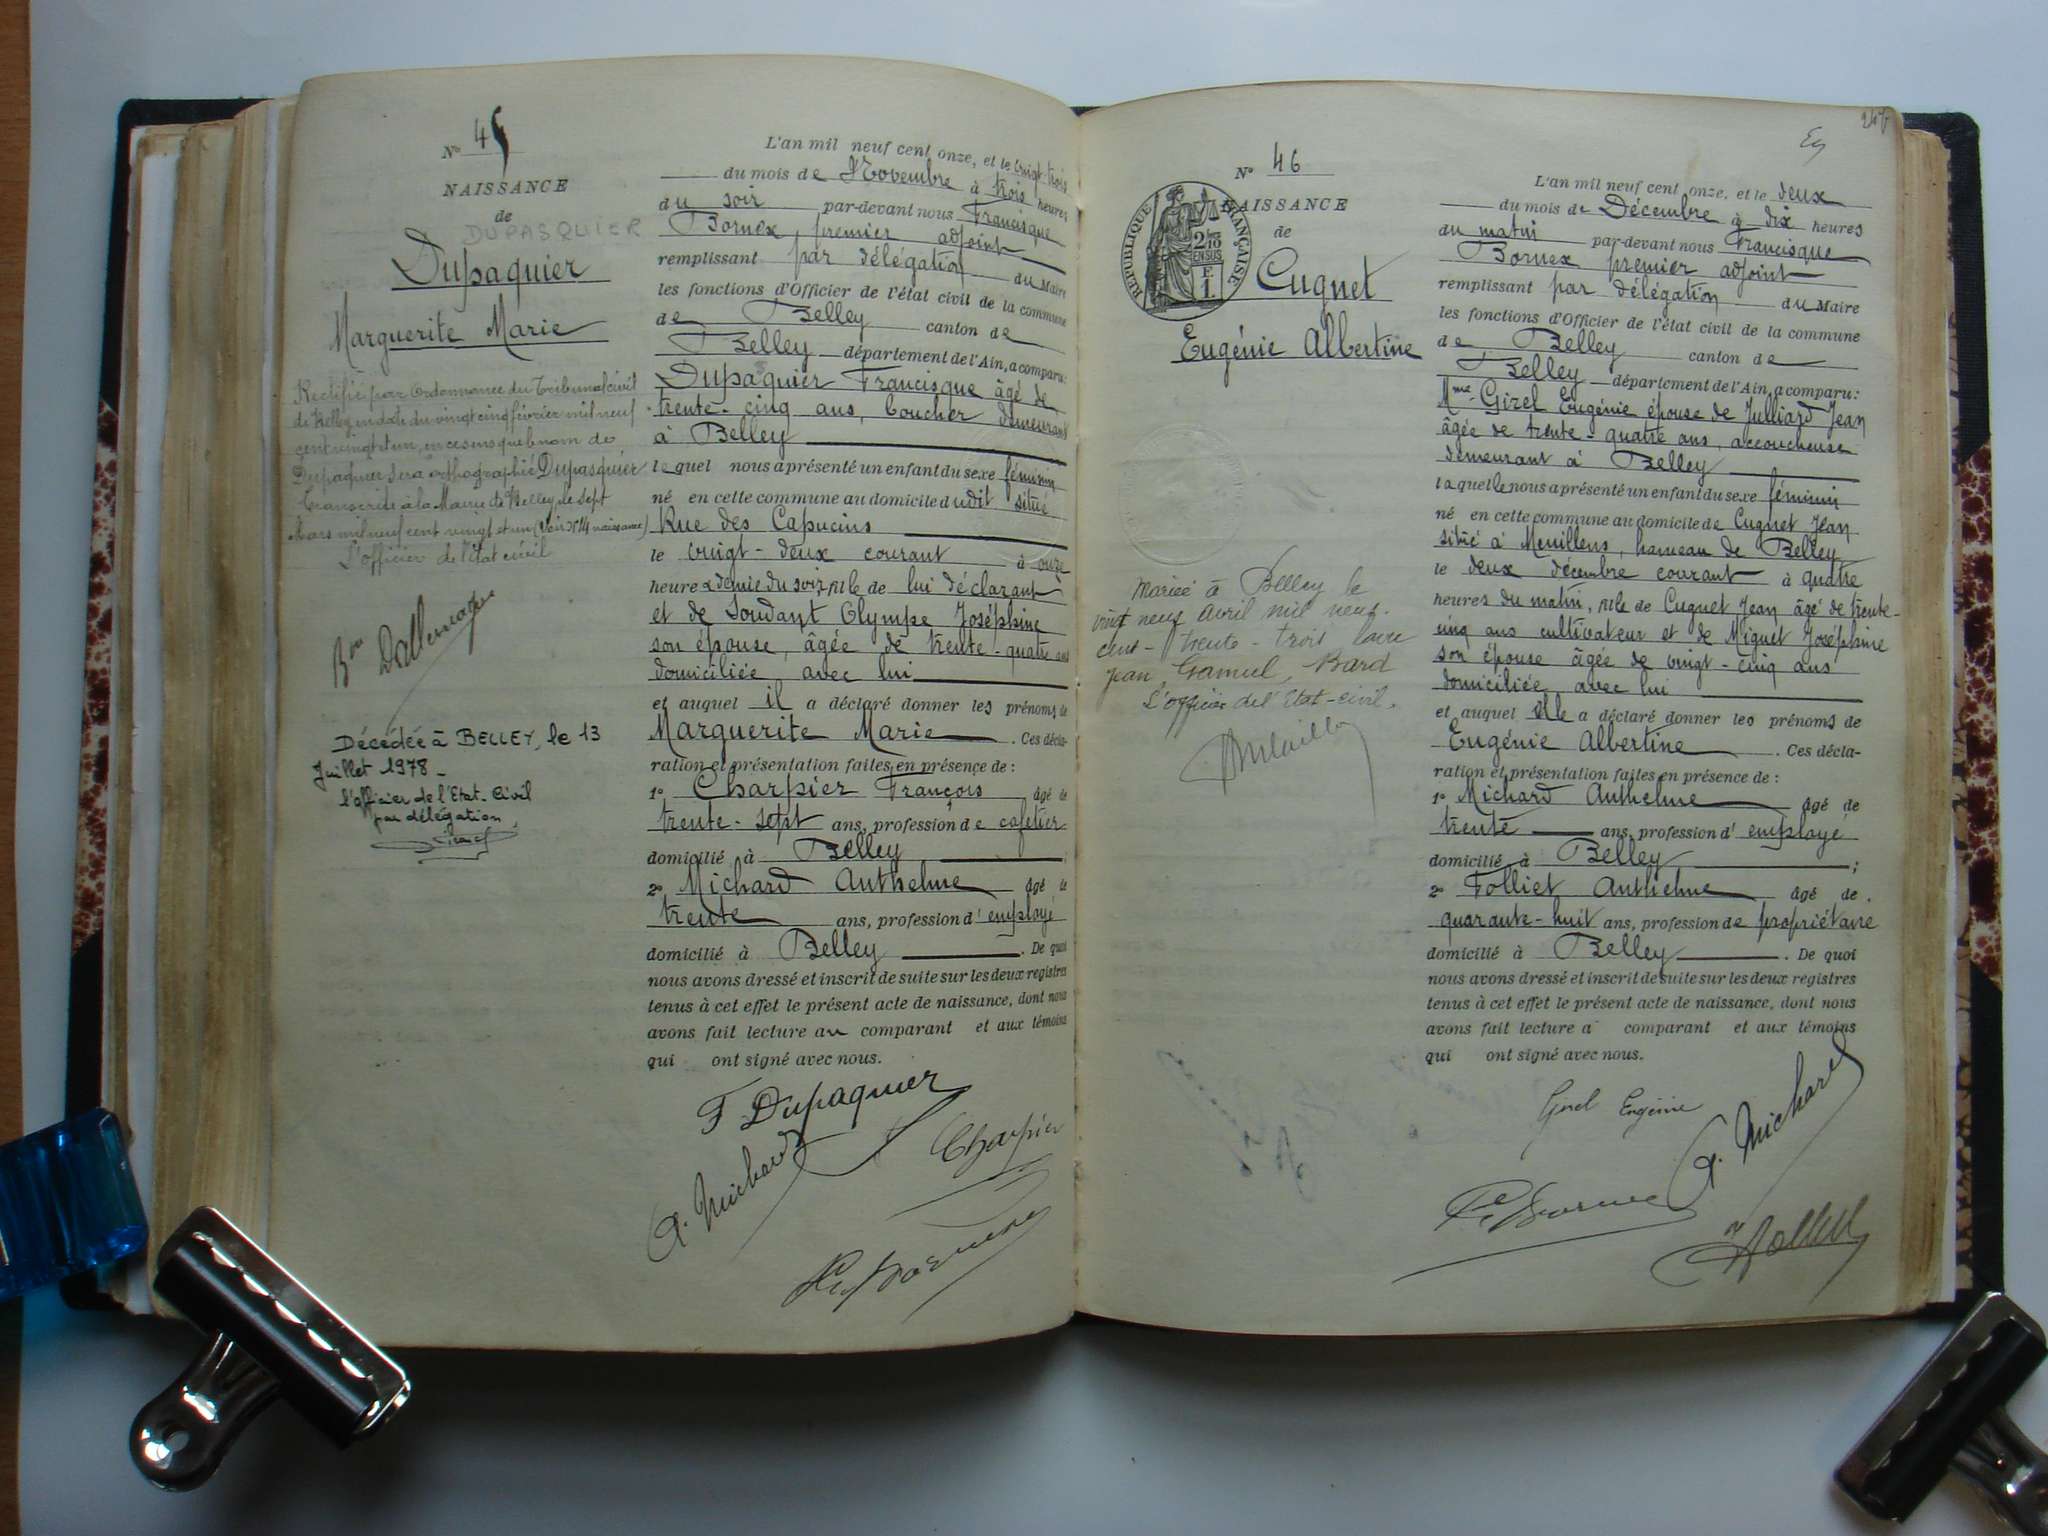 N° 45
NAISSANCE
de
DUPASQUIER
Dupaquier
Marguerite Marie
Rectifié par Ordonnance du Tribunal civil
de Belley en date du vingt cinq février mil neuf
cent vingt et un, en ce sens que le nom de
Dupaquier sera orthographié Dupasquier
Transcrite à la Mairie de Belley le sept
Mars mil neuf cent vingt et un (voir N° 14 naissance)
L'officier de l'état civil
Bon Dallemagne
Décédée à BELLEY, le 13
Juillet 1978_
l'officier de l'Etat-Civil
par délégation,
L'an mil neuf cent onze, et le vingt-trois
du mois de Novembre à trois heures
du soir par-devant nous Francisque
Bornex, premier adjoint
remplissant par délégation du Maire
les fonctions d'Officier de l'état civil de la commune
de Belley canton de
Belley département de l'Ain, a comparu:
Dupasquier Francisque âgé de
trente-cinq ans, boucher demeurant
à Belley
lequel nous a présenté un enfant du sexe féminin
né en cette commune au domicile dudit situé
Rue des Capucins
le vingt-deux courant à onze
heure & demie du soir, fille de lui déclarant
et de Soudant Olympe Joséphine
son épouse, âgée de trente-quatre ans
domiciliée avec lui
et auquel il a déclaré donner les prénoms de
Marguerite Marie . Ces décla-
ration et présentation faites en présence de :
1° Charpier François âgé de
trente-sept ans, profession de cafetier
domicilié à Belley ;
2° Michard Anthelme âgé de
trente ans, profession d'employé
domicilié à Belley . De quoi
nous avons dressé et inscrit de suite sur les deux registres
tenus à cet effet le présent acte de naissance, dont nous
avons fait lecture au comparant et aux témoins
qui ont signé avec nous.
F Dupaquier
A. Michard
Charpier
247
N° 46
NAISSANCE
de
RÉPUBLIQUE FRANÇAISE
2/10
EN SUS
F
1.
Cugnet
Eugénie Albertine
Mariée à Belley le
vint neuf avril mil neuf
cent-trente-trois avec
Jean, Bard
L'officier de l'Etat-civil.
L'an mil neuf cent onze, et le deux
du mois de Décembre à dix heures
du matin par-devant nous Francisque
Bornex premier adjoint
remplissant par délégation du Maire
les fonctions d'Officier de l'état civil de la commune
de Belley canton de
Belley département de l'Ain, a comparu:
Mme Girel Eugénie épouse de Julliard Jean
âgée de trente-quatre ans, accoucheuse
demeurant à Belley
laquelle nous a présenté un enfant du sexe féminin
né en cette commune au domicile de Cugnet Jean
situé à Meuillens, hameau de Belley
le deux décembre courant à quatre
heures du matin, fille de Cugnet Jean âgé de trente-
cinq ans cultivateur et de Miguet Joséphine
son épouse âgée de vingt-cinq ans
domiciliée avec lui
et auquel elle a déclaré donner les prénoms de
Eugénie Albertine . Ces décla-
ration et présentation faites en présence de :
1° Michard Anthelme âgé de
trente ans, profession d'employé
domicilié à Belley ;
2° Folliet Anthelme âgé de
quarante-huit ans, profession de propriétaire
domicilié à Belley . De quoi
nous avons dressé et inscrit de suite sur les deux registres
tenus à cet effet le présent acte de naissance, dont nous
avons fait lecture a comparant et aux témoins
qui ont signé avec nous.
Girel Eugénie
A. Michard